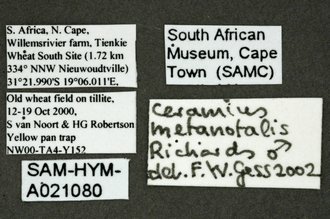 S. Africa, N. Cape,
Willemsrivier farm, Tienkie
Wheat South Site (1.72 km
334° NNW Nieuwoudtville)
31°21.990S 19°06.011'E,
Old wheat field on tillite,
12-19 Oct 2000,
S van Noort & HG Robertson
Yellow pan trap
NW00-TA4-Y152
SAM-HYM-
A021080
South African
Museum, Cape
Town (SAMC)
Ceramius
metanotalis
Richards ♂
det. F.W. Gess 2002